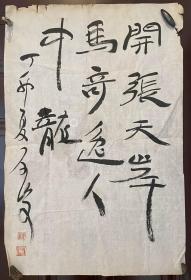 開張天岸
馬奇逸人
中龍
丁卯夏